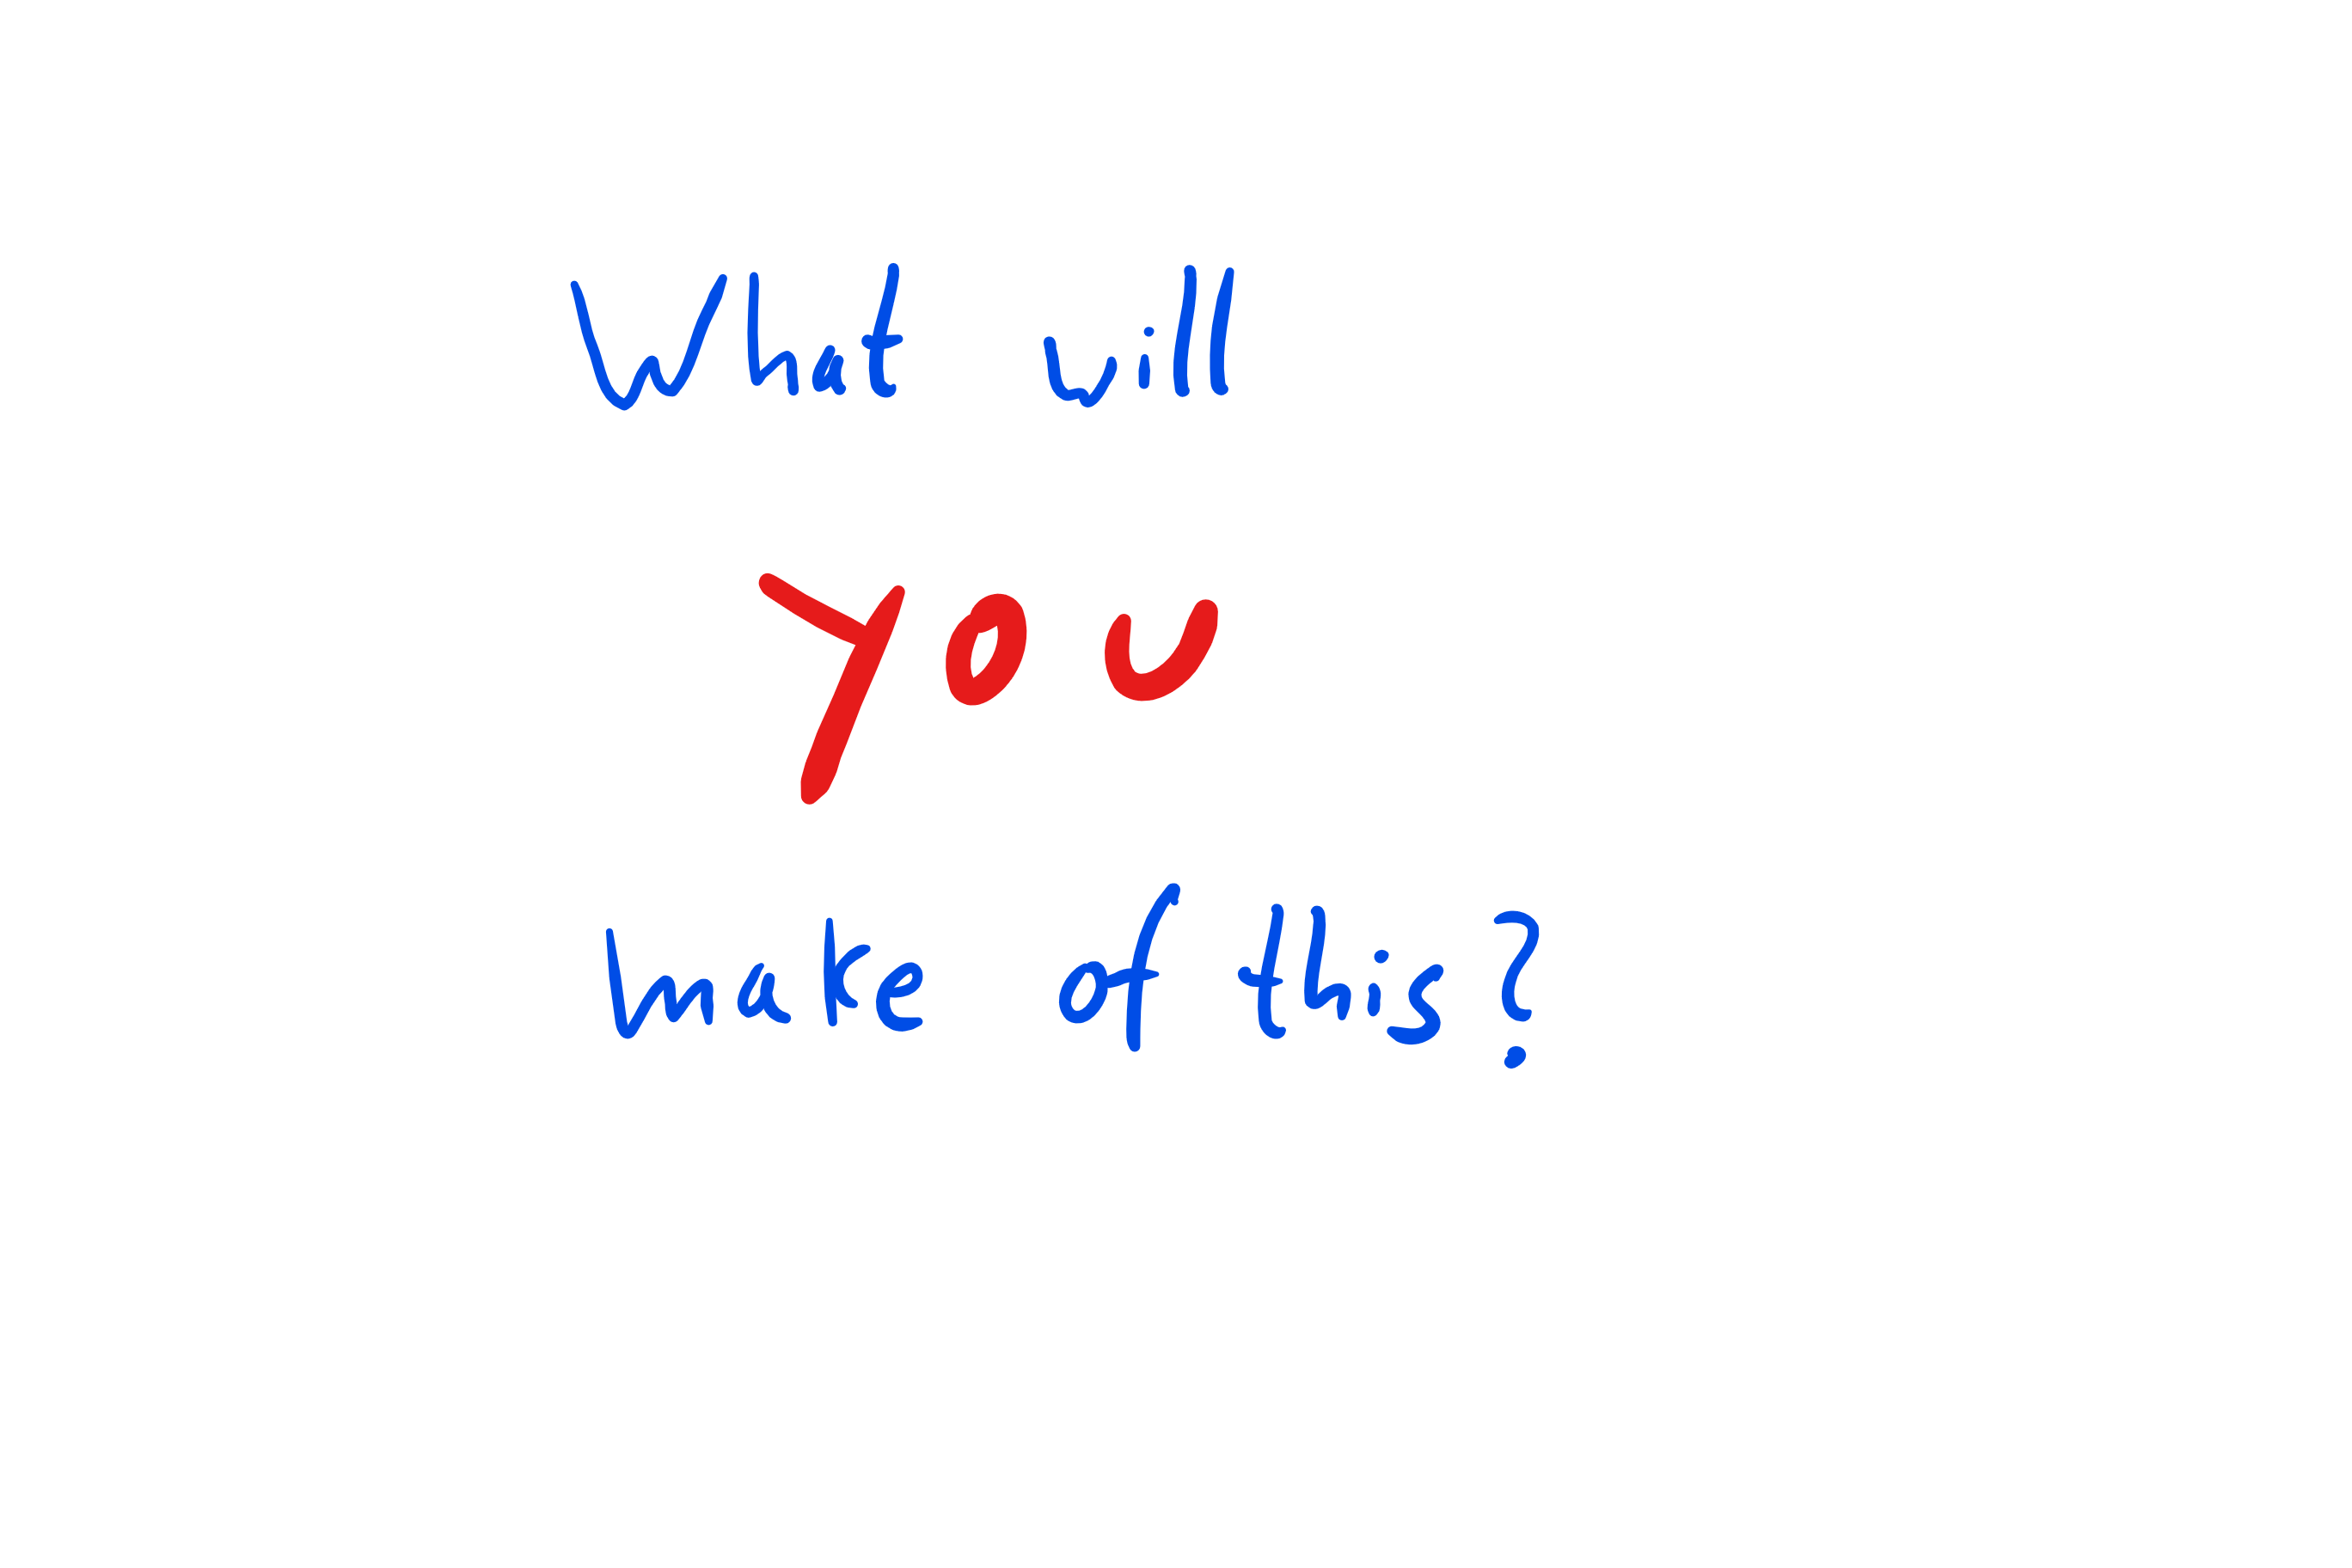 What will
you
make of this?